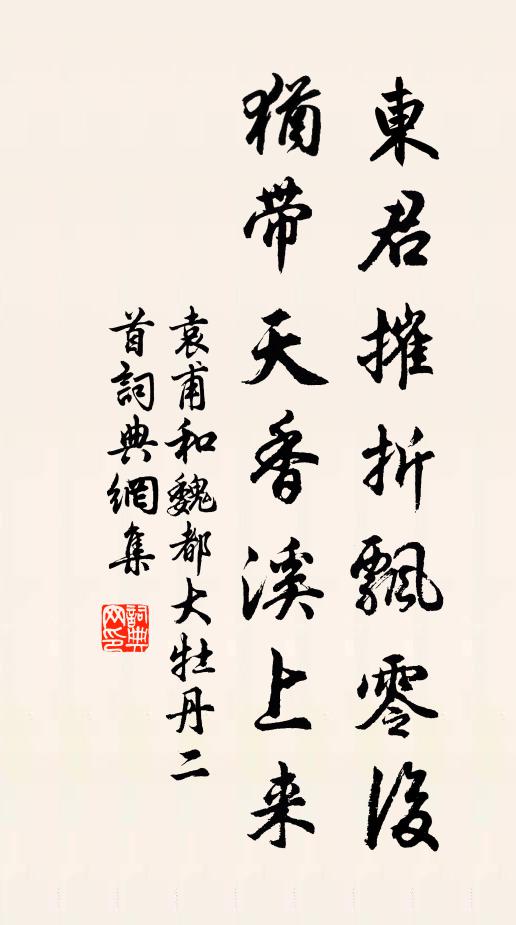 東君摧折飄零後
猶帶天香溪上来
袁甫和魏都大牡丹二
首詞典網集
詞典
网印